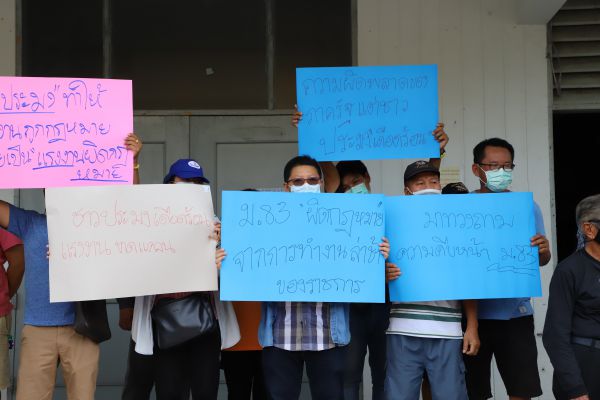 ประมง" ทำให้
งานถูกกฎหมาย
ยเป็น "แรงงานผิดกฎ
หมาย
ความผิดพลาดของ
ภาครัฐ แต่ชาว
ประมงเดือดร้อน
ชาวประมงเดือดร้อน
แรงงานขาดแคลน
ม.83 "ผิดกฎหมาย"
จากการทำงานล่าช้า
ของราชการ
มาทวงถาม
ความคืบหน้า ม.83